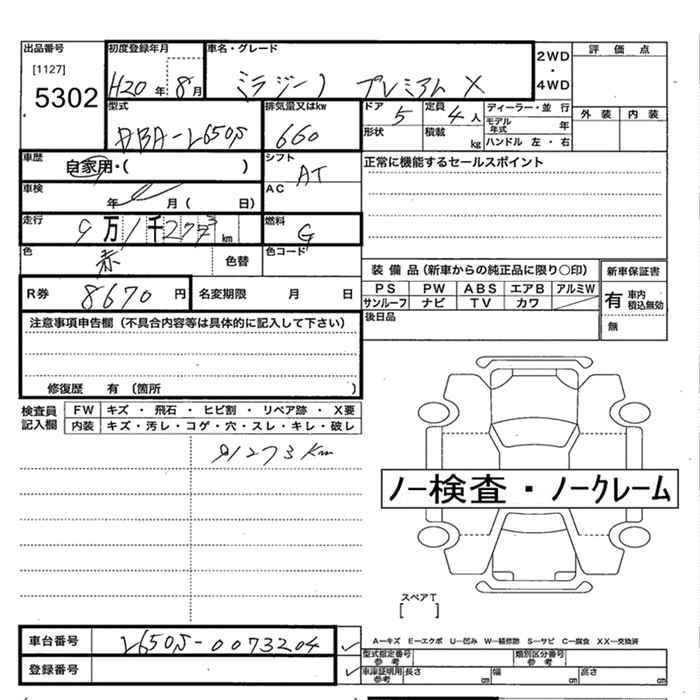 出品番号 初度登録年月 車名・グレード 2WD ・ 4WD 評価点
[1127]
5302 H20年 8月 ミラジーノ プレミアム X
型式 排気量又はkw ドア 5 定員 4人 ディーラー・並行 外装 内装
DBA-L650S 660 形状 積載 kg モデル年式 年
ハンドル 左・右
車歴 自家用・( ) シフト AT 正常に機能するセールスポイント
車検 年 月( 日) AC
走行 9万1千273km 燃料 G
色 赤 色替 色コード
装備品(新車からの純正品に限り○印) 新車保証書
R券 8670円 名変期限 月 日 PS PW ABS エアB アルミW 有 車内 積込無効
サンルーフ ナビ TV カワ
注意事項申告欄(不具合内容等は具体的に記入して下さい) 後日品 無
修復歴 有(箇所 )
検査員記入欄 FW キズ・飛石・ヒビ割・リペア跡・X要
内装 キズ・汚レ・コゲ・穴・スレ・キレ・破レ
91273Km
ノー検査・ノークレーム
スペアT
[ ]
車台番号 L650S-0073204 A−キズ E−エクボ U−凹み W−補修跡 S−サビ C−腐食 XX−交換済
型式指定番号 参考 類別区分番号 参考
登録番号 車庫証明用 参考 長さ cm 幅 cm 高さ cm